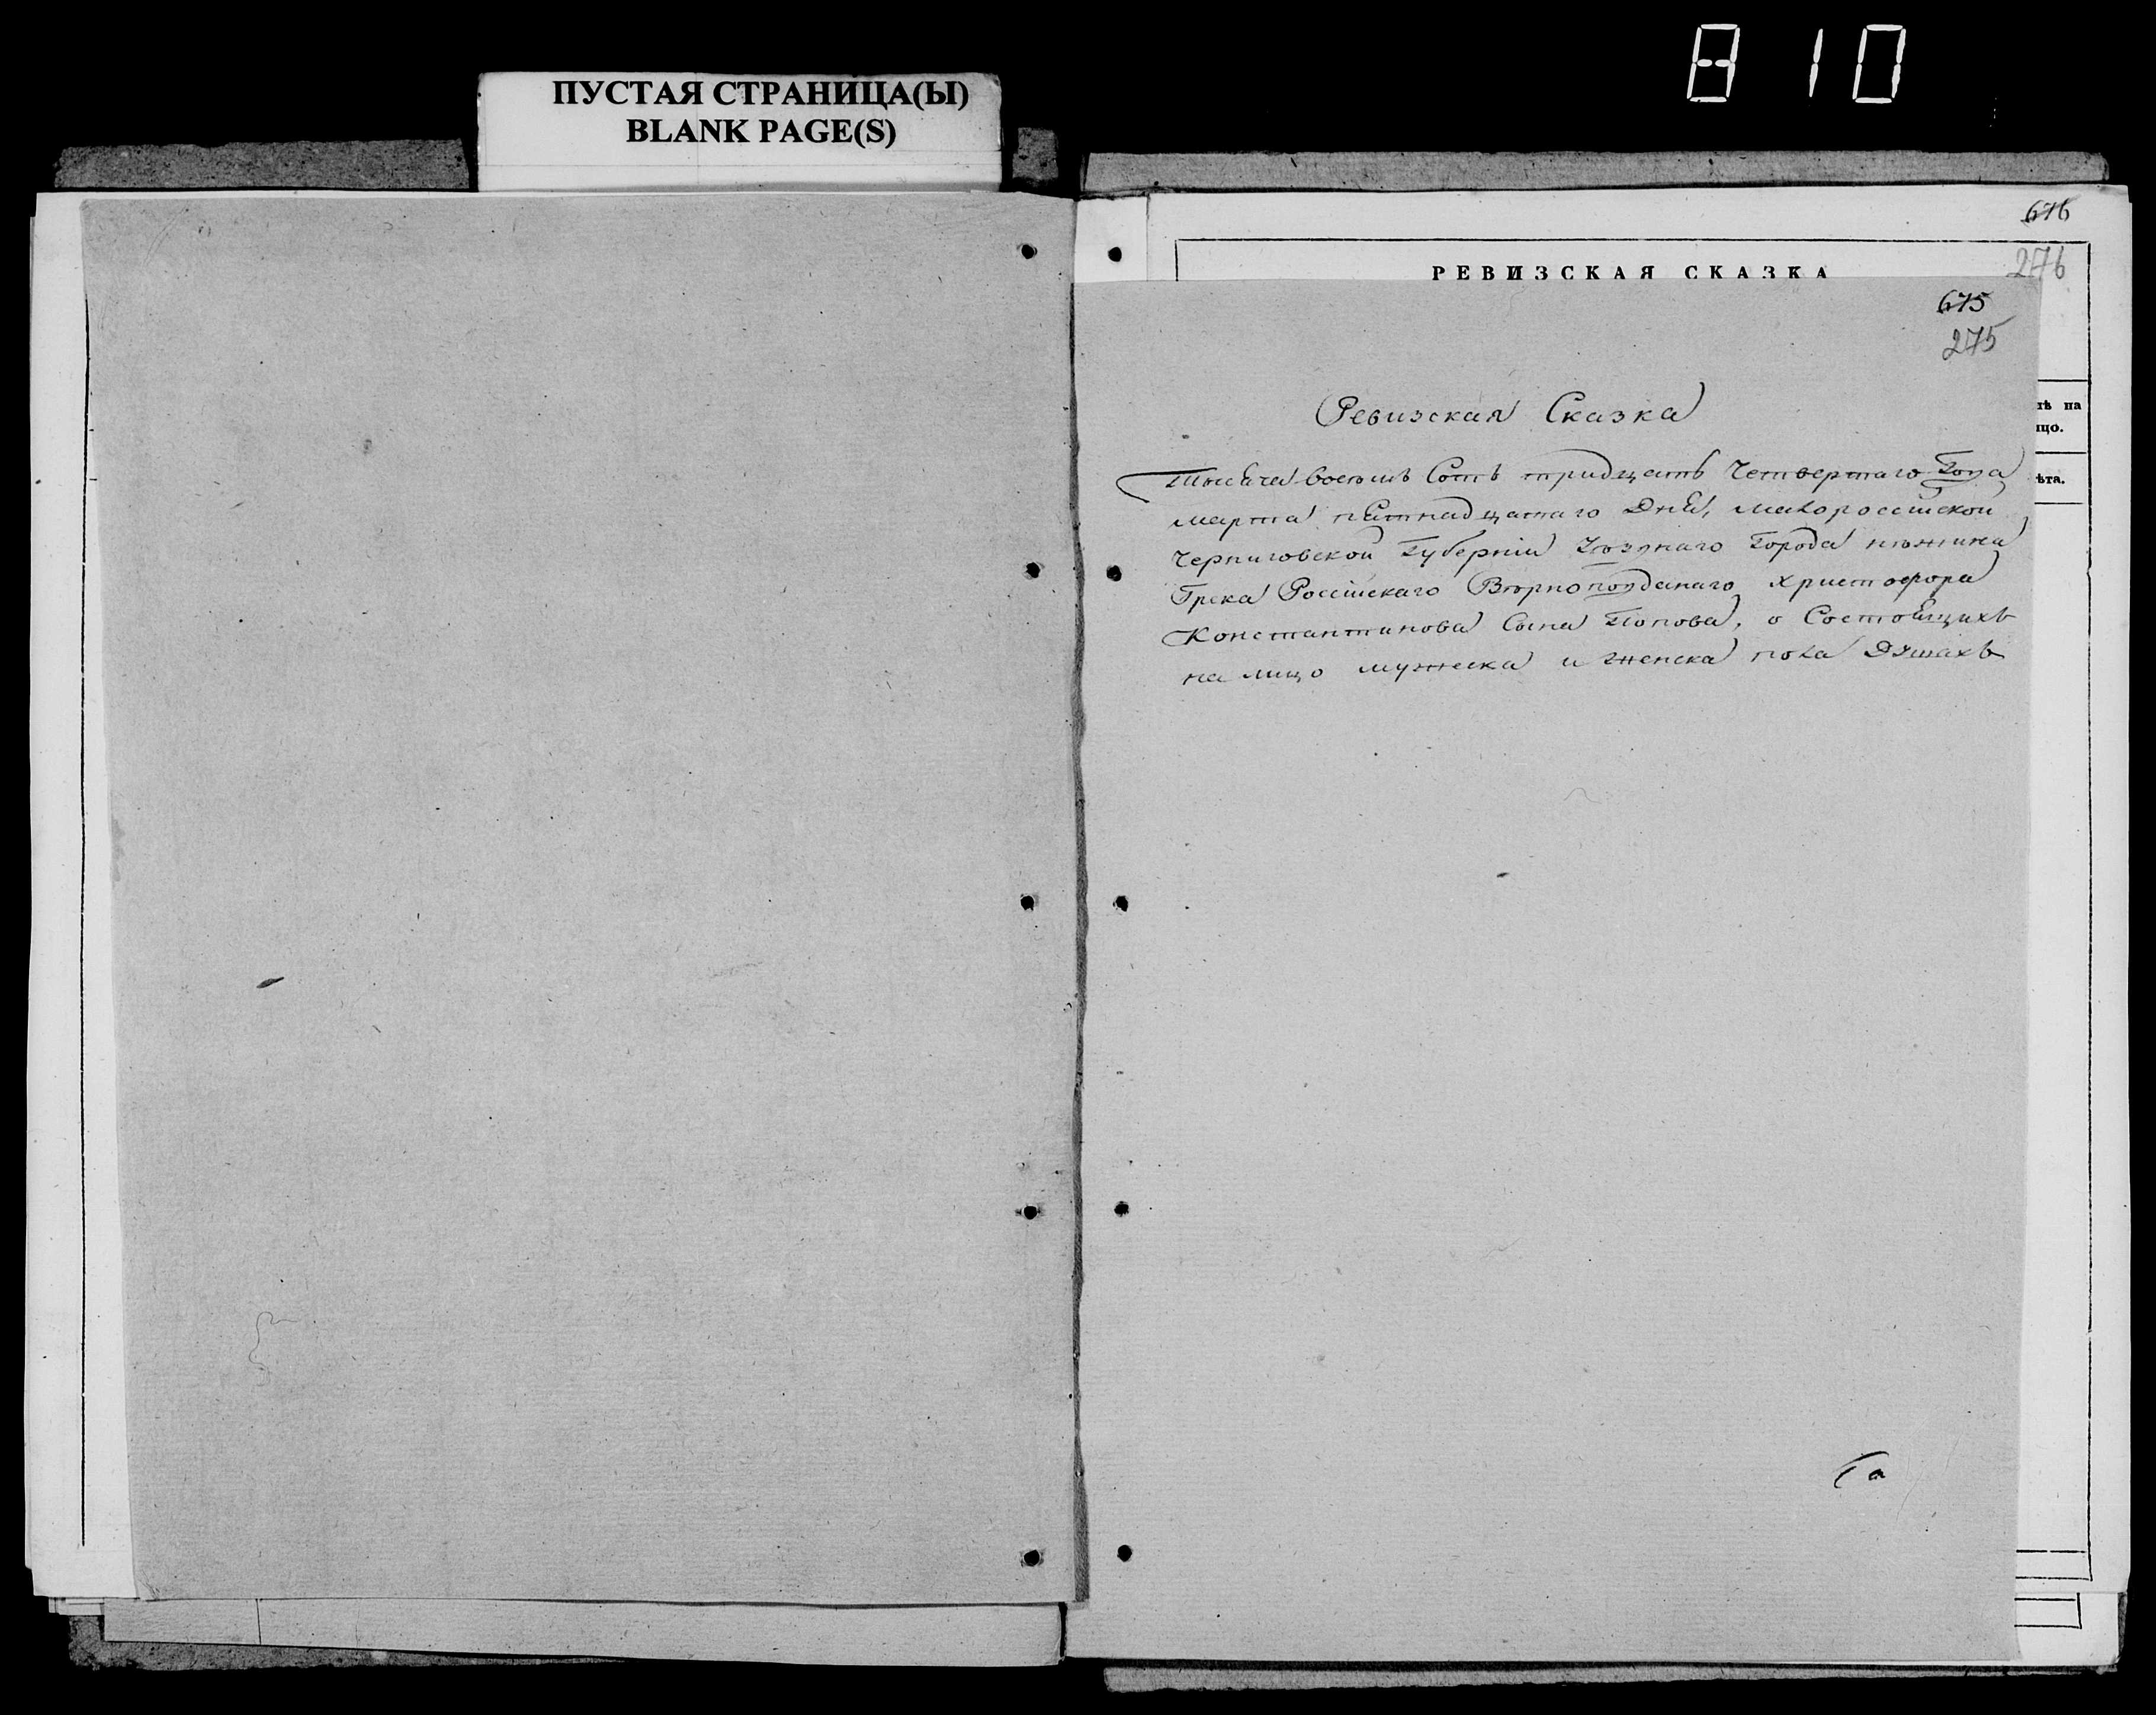 810
ПУСТАЯ СТРАНИЦА(Ы)
BLANK PAGE(S)
676
276
РЕВИЗСКАЯ СКАЗКА
675
275
Ревизская Сказка
тысеча восемъ Сотъ тридцать Четвертаго Года
марта петнадцатаго Дне, малоросійской
черниговской Губерніи Уезднаго Города нѣжина
Грека Російскаго Вѣрноподданаго христофора
Константинова Сына Попова, о Состоещихъ
на лицо мужеска и женска пола Душахъ
ѣта.